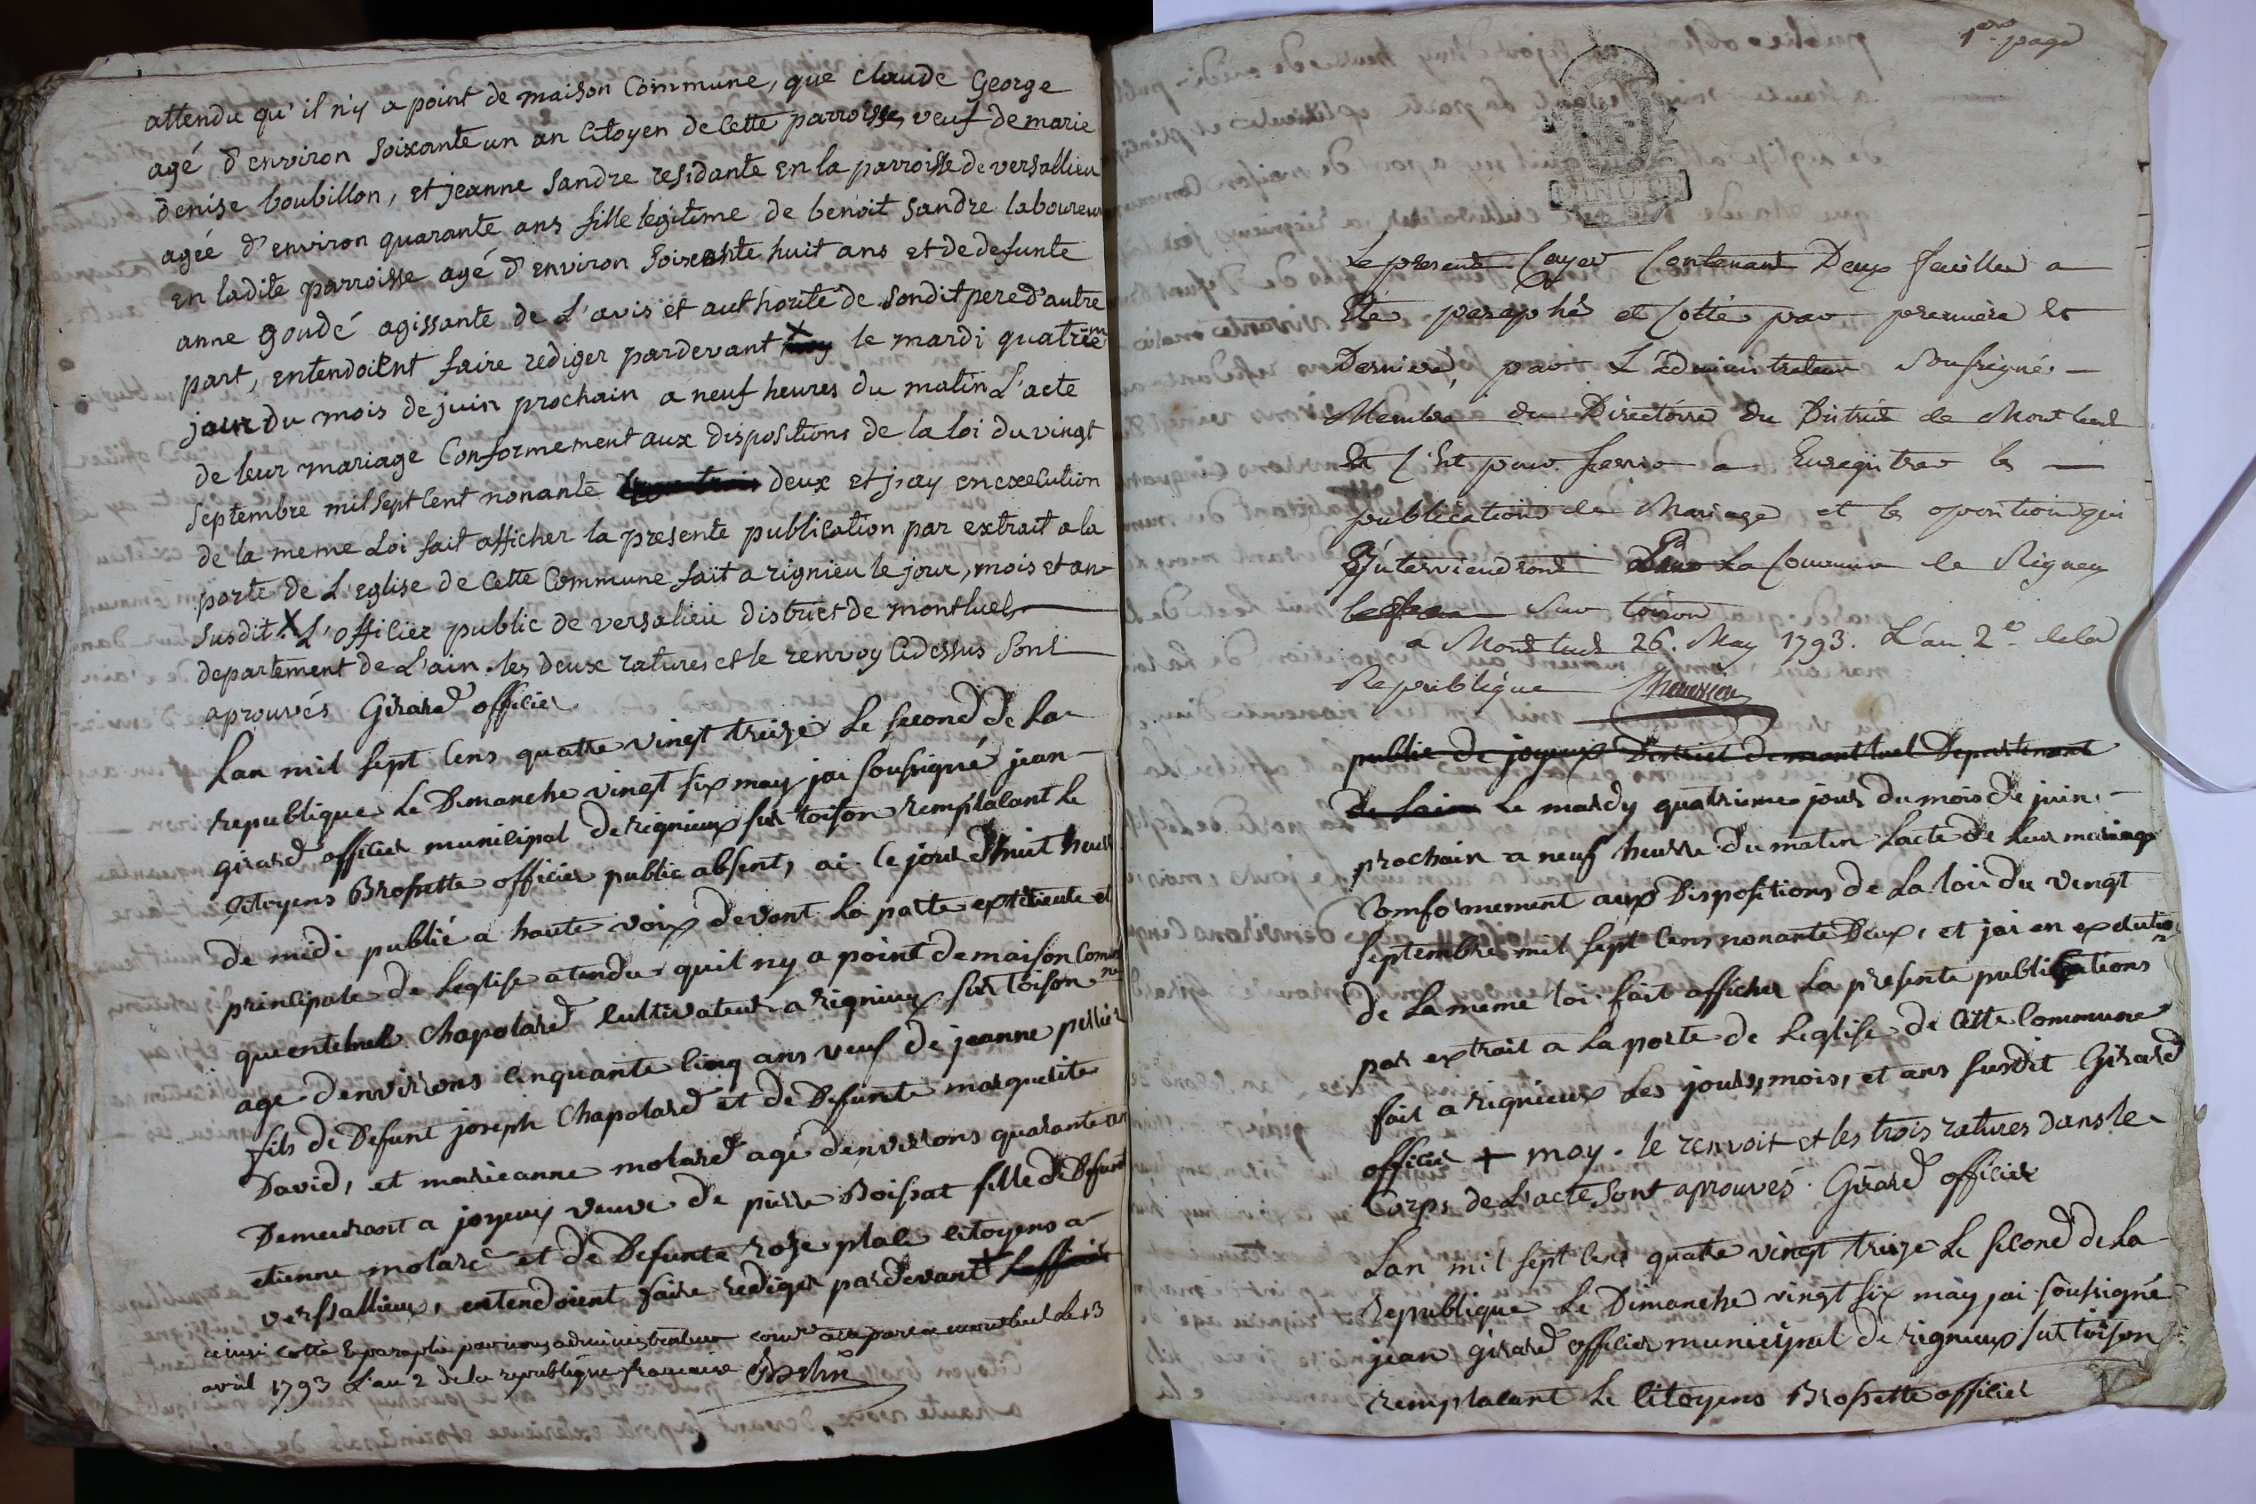 attendu qu'il n'y a point de maison Commune, que claude George
agé d'environ soixante un an citoyen de cette parroisse, veuf de marie
denise boubillon, et jeanne sandre residante en la parroisse de versallieu
agée d'environ quarante ans fille legitime de benoit sandre laboureur
en ladite parroisse agé d'environ soixante huit ans et de defunte
anne goudé agissante de l'avis et authorité de sondit pere d'autre
part, entendoient faire rediger pardevant X moy le mardi quatriem
jour du mois de juin prochain a neuf heures du matin L'acte
de leur mariage Conformement aux dispositions de la loi du vingt
septembre mil sept cent nonante deux et j'ay en execution
de la meme Loi fait afficher la presente publication par extrait a la
porte de L'eglise de cette Commune fait a rignieu le jour, mois et an
susdit. X L'officier public de versalieu district de montluel
departement de L'ain. les deux ratures et le renvoy cidessus sont
aprouvés Girard officier
Lan mil sept cens quatre vingt treize Le second de La
republique Le Dimanche vingt six may jai sousigné jean
girard officier municipal de rignieux sur toison remplacant Le
citoyens Brossette officier public absent, ai ce jour dhuit heure
de midi publié a haute voix devant La porte exterieute et
principale de Leglise atendu quil ny a point de maison Commune
que entelmel Chapolard cultivateur a rignieux sur toison
age denvirons cinquante cinq ans veuf de jeanne perrier
fils de Defunt joseph Chapolard et de Defunte marguerite
David, et marieanne molard agé denvirons quarante an
Demeurant a joyeux veuve de pierre Boissat fille de Defunt
etienne molard et de Defunte roze place citoyens a
versallieux, entendoient faire rediger pardevant + Lofficier
ainsi cotté & paraphé par nous administrateur a montluel le 13
avril 1793 L'an 2 de la republique francaise
1ere page
Le present Cayer Contenant Deux feuilles a
Eté paraphé et Cotté par premiere et
Derniere, par L'administrateur Soussigné
Membre du Directoire du District de Montluel
Et C'est pour servir a Enregistrer les
publications de Mariage et les opositions qui
Interviendront Dans La Commune de Rigneu
sur toison
a Montluel 26. May 1793. L'an 2e de la
Republique
public de joyeux District de montluel Departement
de Lain Le mardy quatrieme jour du mois de juin
prochain a neuf heurre du maten Lacte de Leur mariage
Comformement aux Dispositions de La loi du vingt
septembre mil sept cens nonante Deux, et jai en exécution
de La meme loi fait afficher La presente publications
par extrait a La porte de Leglise de cette Commune
fait a rignieux Les jours, mois, et ans susdit Girard
officier + moy. le renvoit et les trois ratures dans le
Corps de L'acte sont aprouvés. Girard officier
Lan mil sept cens quatre vingt treize Le second de La
Republique Le Dimanche vingt six may jai sousigné
jean girard officier municipal de rignieux sur toison
remplacant Le citoyens Brossette officier